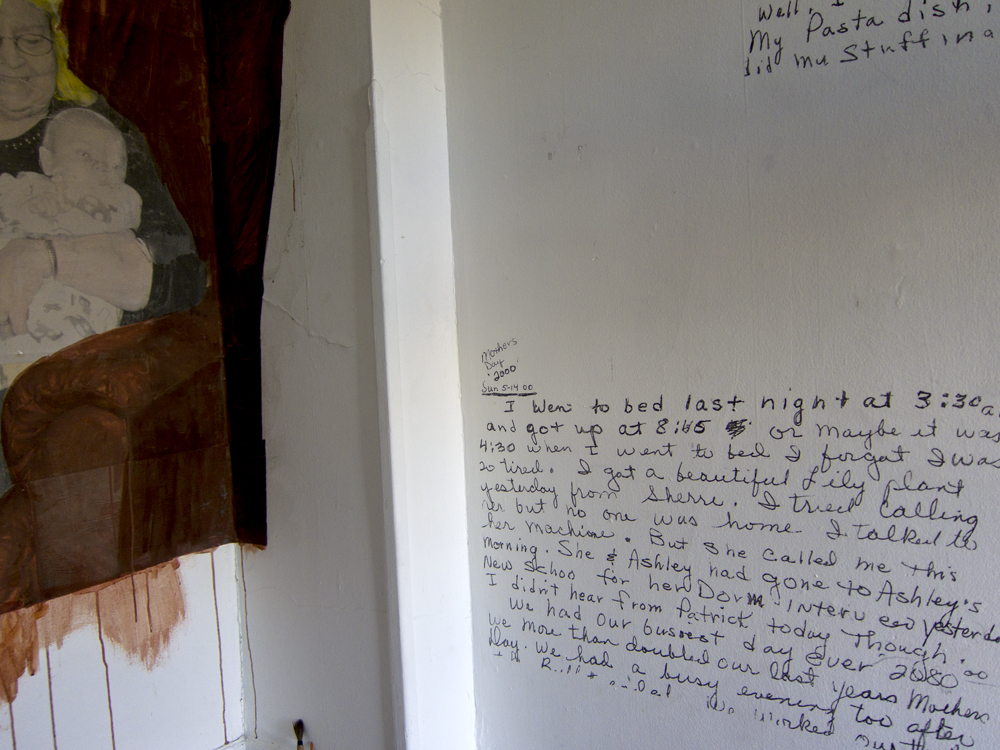 Well, I
My Pasta dish,
did my Stuff in a
Mothers
Day
2000
Sun 5-14 00
I Went to bed last night at 3:30 a
and got up at 8:45 or maybe it was
4:30 when I went to bed I forgot I was
so tired. I got a beautiful Lily plant
yesterday from Sherre. I tried calling
her but no one was home. I talked to
her machine. But she called me this
morning. She & Ashley had gone to Ashley's
New School for her Dorm Interv yesterda
I didn't hear from Patrick today Though.
We had our busiest day ever 2080 00
We more than doubled our last years Mothers
Day. We had a busy evening too after
We worked our